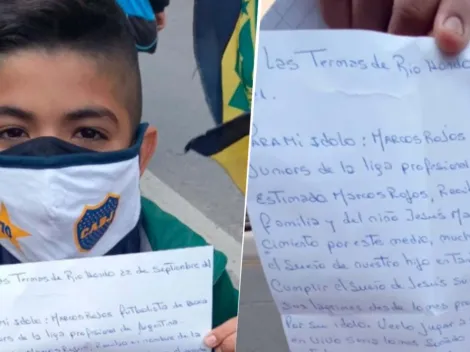 C.A.B.J.
as Termas de Rio Hondo 23 de Septiembre del
AMI idolo: Marcos Rojos futbolista de Boca
ors de la liga profesional de Argentina.
Marcos Rojos, Reciba en nombre de la
Las Termas de Rio Hondo
l.
PARA MI idolo: MARCOS Rojos
Juniors de la liga profesional
Estimado Marcos Rojos, Reci
familia y del niño Jesus M
cimiento por este medio, much
el sueño de nuestro hijo
Cumplir el sueño de Jesus se
sus lagrimas desde lo mas pro
Por su idolo. Verlo jugar a
en vivo seria lo mas soñado